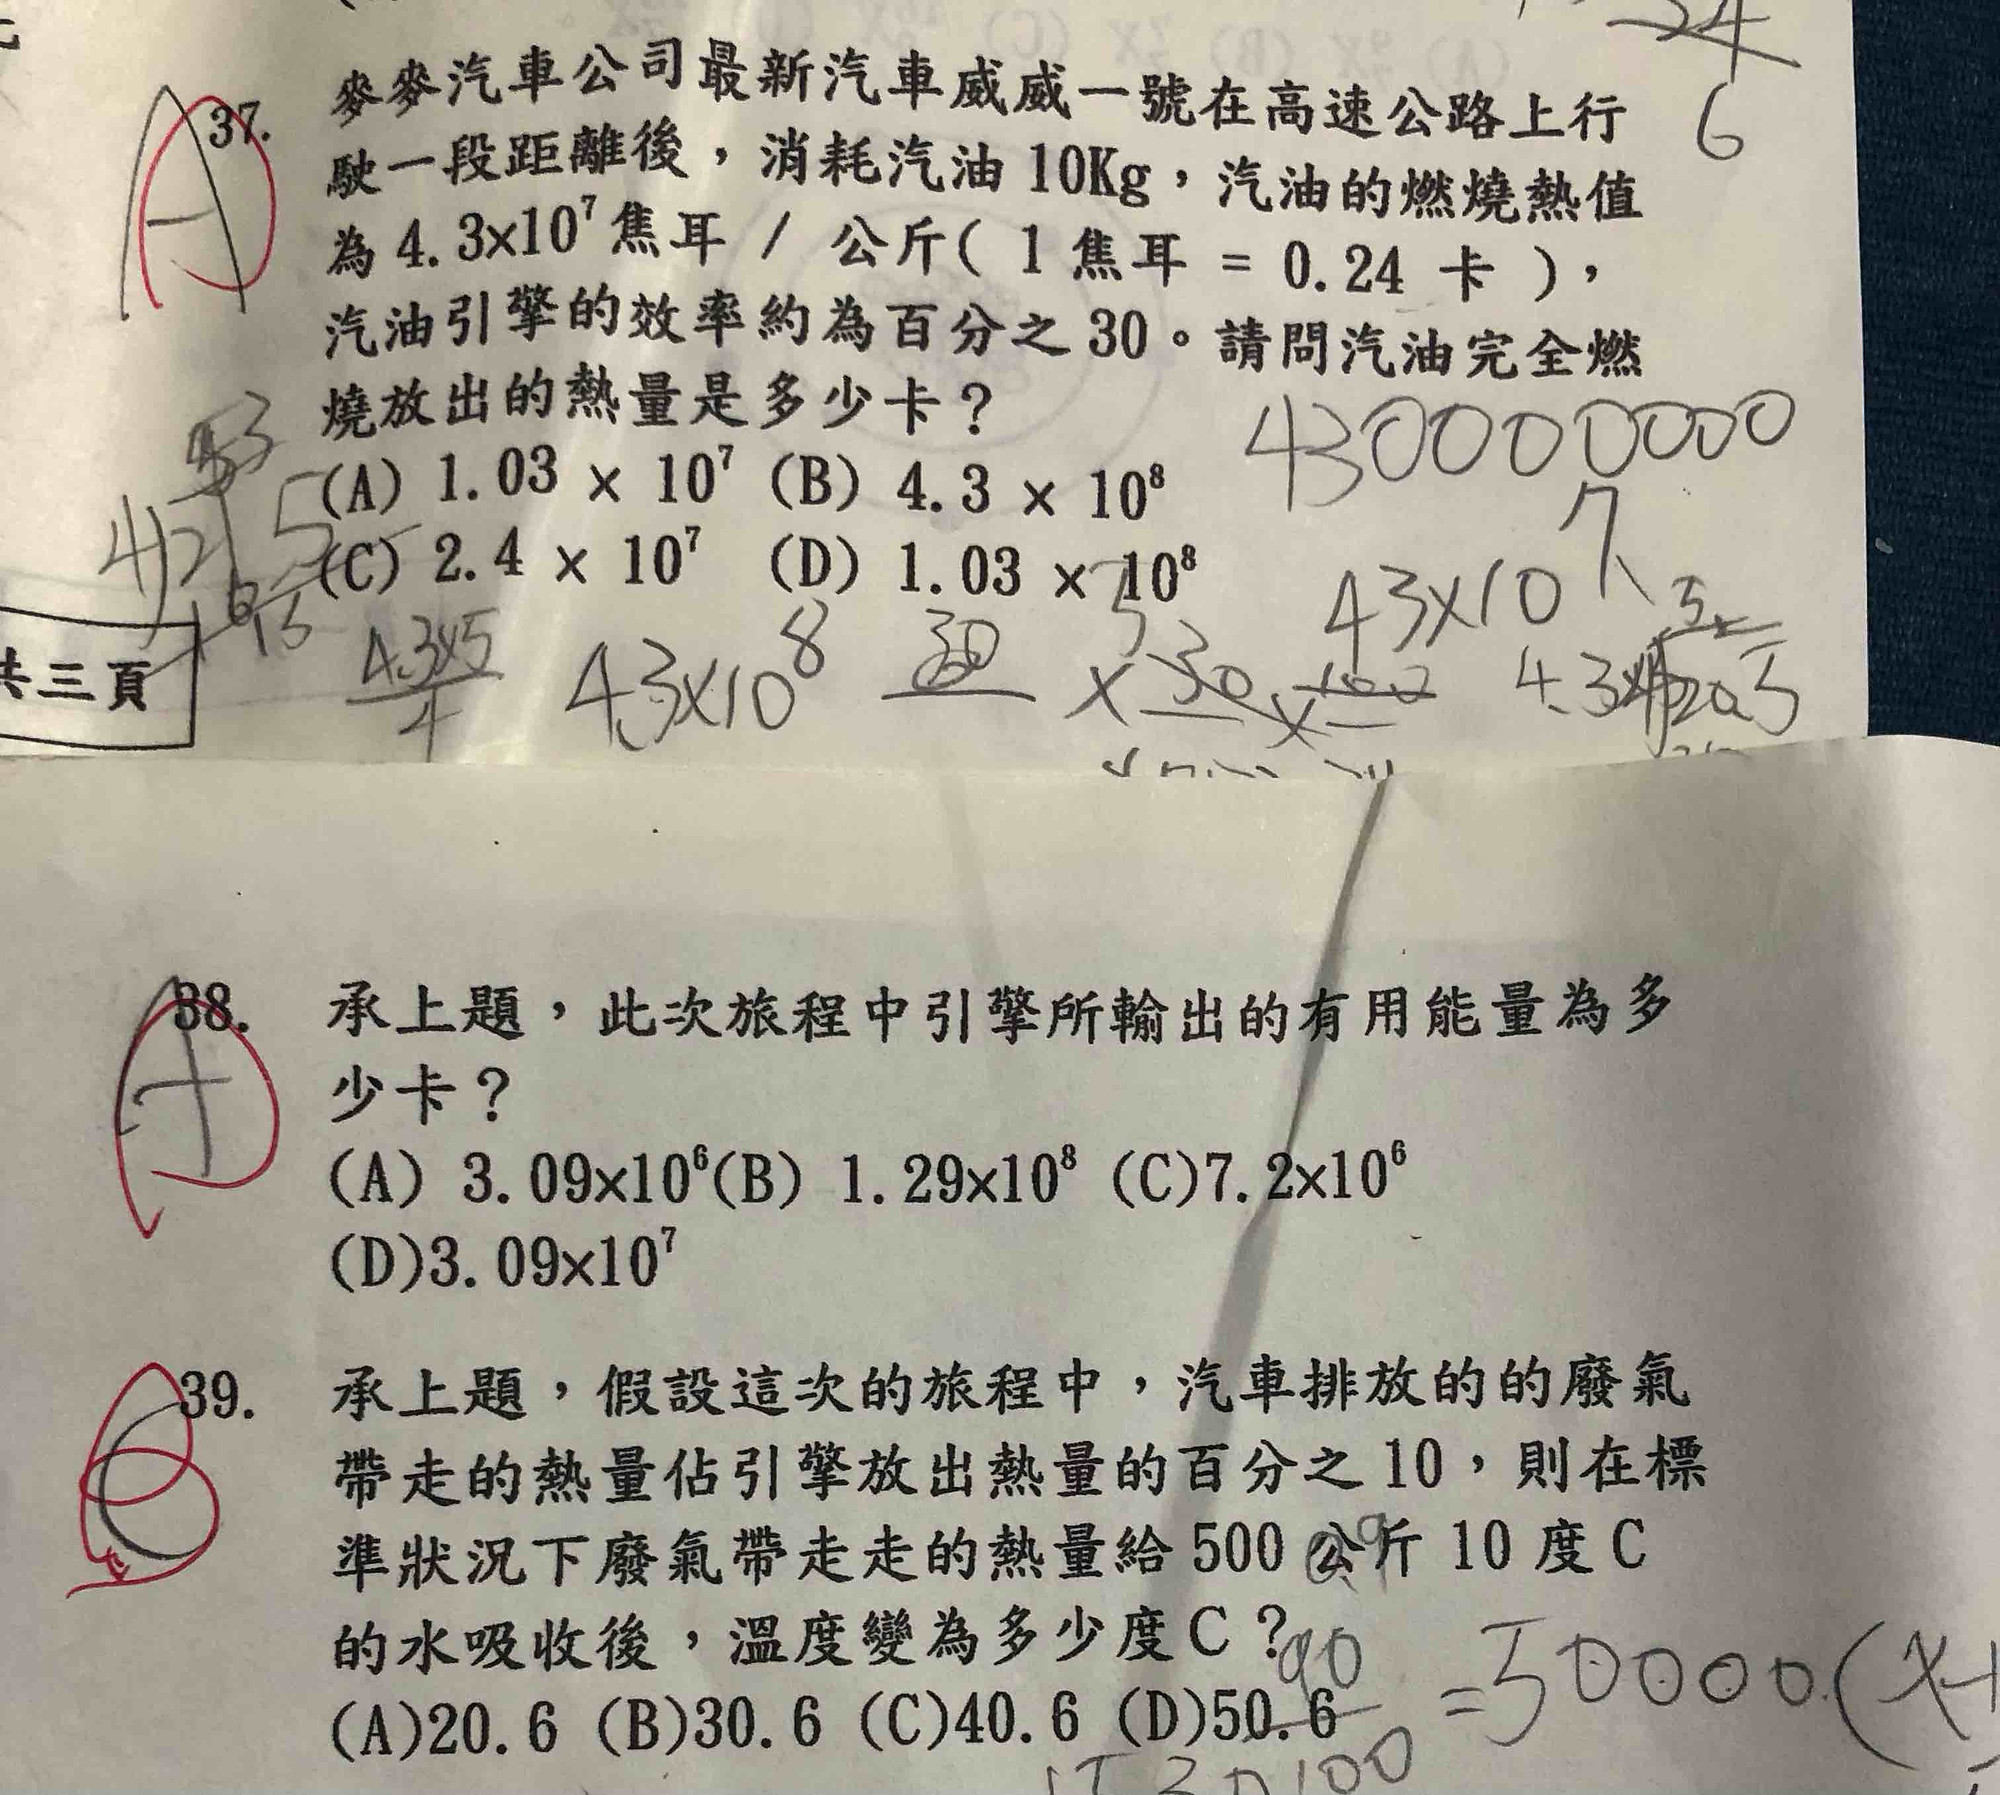 24
6
37. 麥麥汽車公司最新汽車威威一號在高速公路上行
駛一段距離後,消耗汽油 10Kg,汽油的燃燒熱值
為 4.3×10⁷ 焦耳 / 公斤( 1 焦耳 = 0.24 卡 ),
汽油引擎的效率約為百分之 30。請問汽油完全燃
燒放出的熱量是多少卡?
430000000
(A) 1.03 × 10⁷ (B) 4.3 × 10⁸
(C) 2.4 × 10⁷ (D) 1.03 × 10⁸
43×10⁷
4.3×5
4
4.3×10⁸
共三頁
38. 承上題,此次旅程中引擎所輸出的有用能量為多
少卡?
(A) 3.09×10⁶(B) 1.29×10⁸ (C)7.2×10⁶
(D)3.09×10⁷
39. 承上題,假設這次的旅程中,汽車排放的的廢氣
帶走的熱量佔引擎放出熱量的百分之 10,則在標
準狀況下廢氣帶走走的熱量給 500 公斤 10 度 C
的水吸收後,溫度變為多少度 C?
(A)20.6 (B)30.6 (C)40.6 (D)50.6
90
100